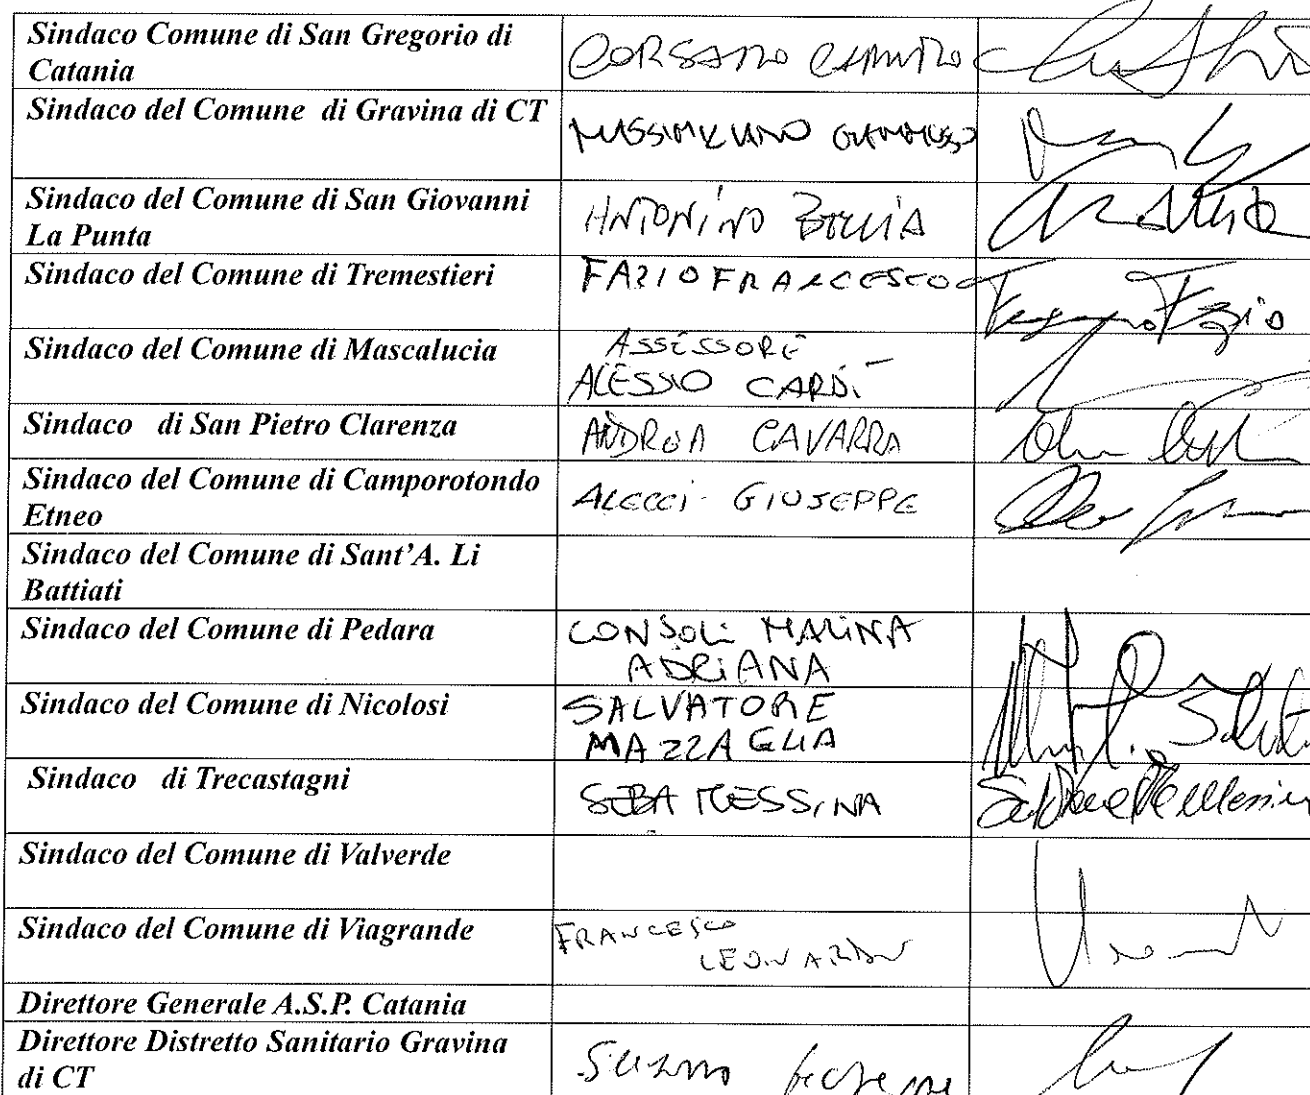 Sindaco Comune di San Gregorio di
Catania
CORSARO CARMELO
Sindaco del Comune di Gravina di CT
MASSIMILIANO GIAMMUSSO
Sindaco del Comune di San Giovanni
La Punta
ANTONINO BELLIA
Sindaco del Comune di Tremestieri
FAZIO FRANCESCO
Francesco Fazio
Sindaco del Comune di Mascalucia
ASSESSORE
ALESSIO CARDÌ
Sindaco di San Pietro Clarenza
ANDREA CAVARRA
Sindaco del Comune di Camporotondo
Etneo
ALECCI GIUSEPPE
Sindaco del Comune di Sant'A. Li
Battiati
Sindaco del Comune di Pedara
CONSOLI MARINA
ADRIANA
Sindaco del Comune di Nicolosi
SALVATORE
MAZZAGLIA
Sindaco di Trecastagni
SEBA MESSINA
Sindaco del Comune di Valverde
Sindaco del Comune di Viagrande
FRANCESCO
LEONARDI
Direttore Generale A.S.P. Catania
Direttore Distretto Sanitario Gravina
di CT